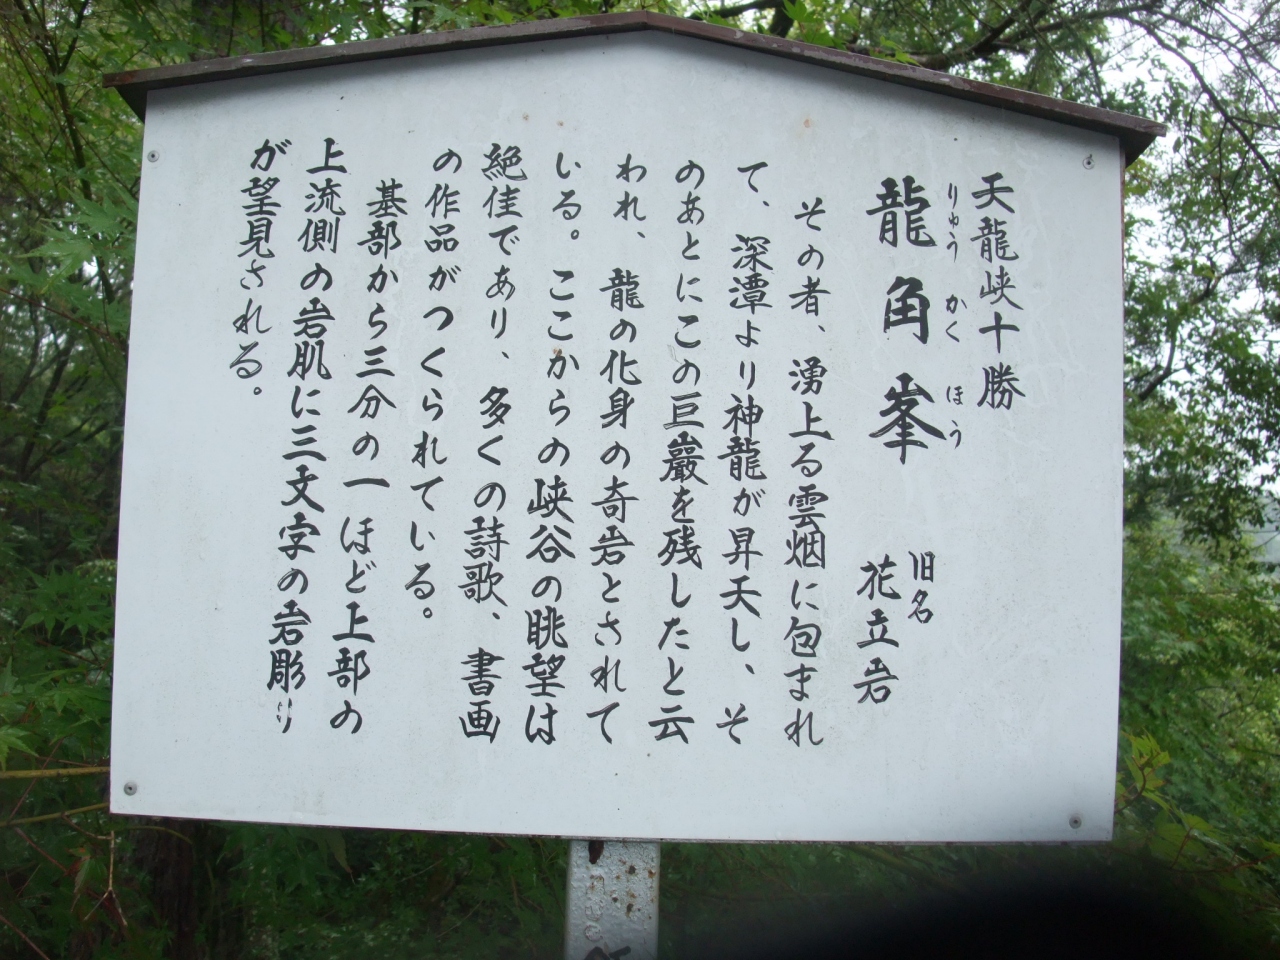 天龍峡十勝
りゅう かく ほう
龍角峯 旧名 花立岩
その者、湧上る雲烟に包まれ
て、深潭より神龍が昇天し、そ
のあとにこの巨巖を残したと云
われ、龍の化身の奇岩とされて
いる。ここからの峡谷の眺望は
絶佳であり、多くの詩歌、書画
の作品がつくられている。
基部から三分の一ほど上部の
上流側の岩肌に三文字の岩彫り
が望見される。